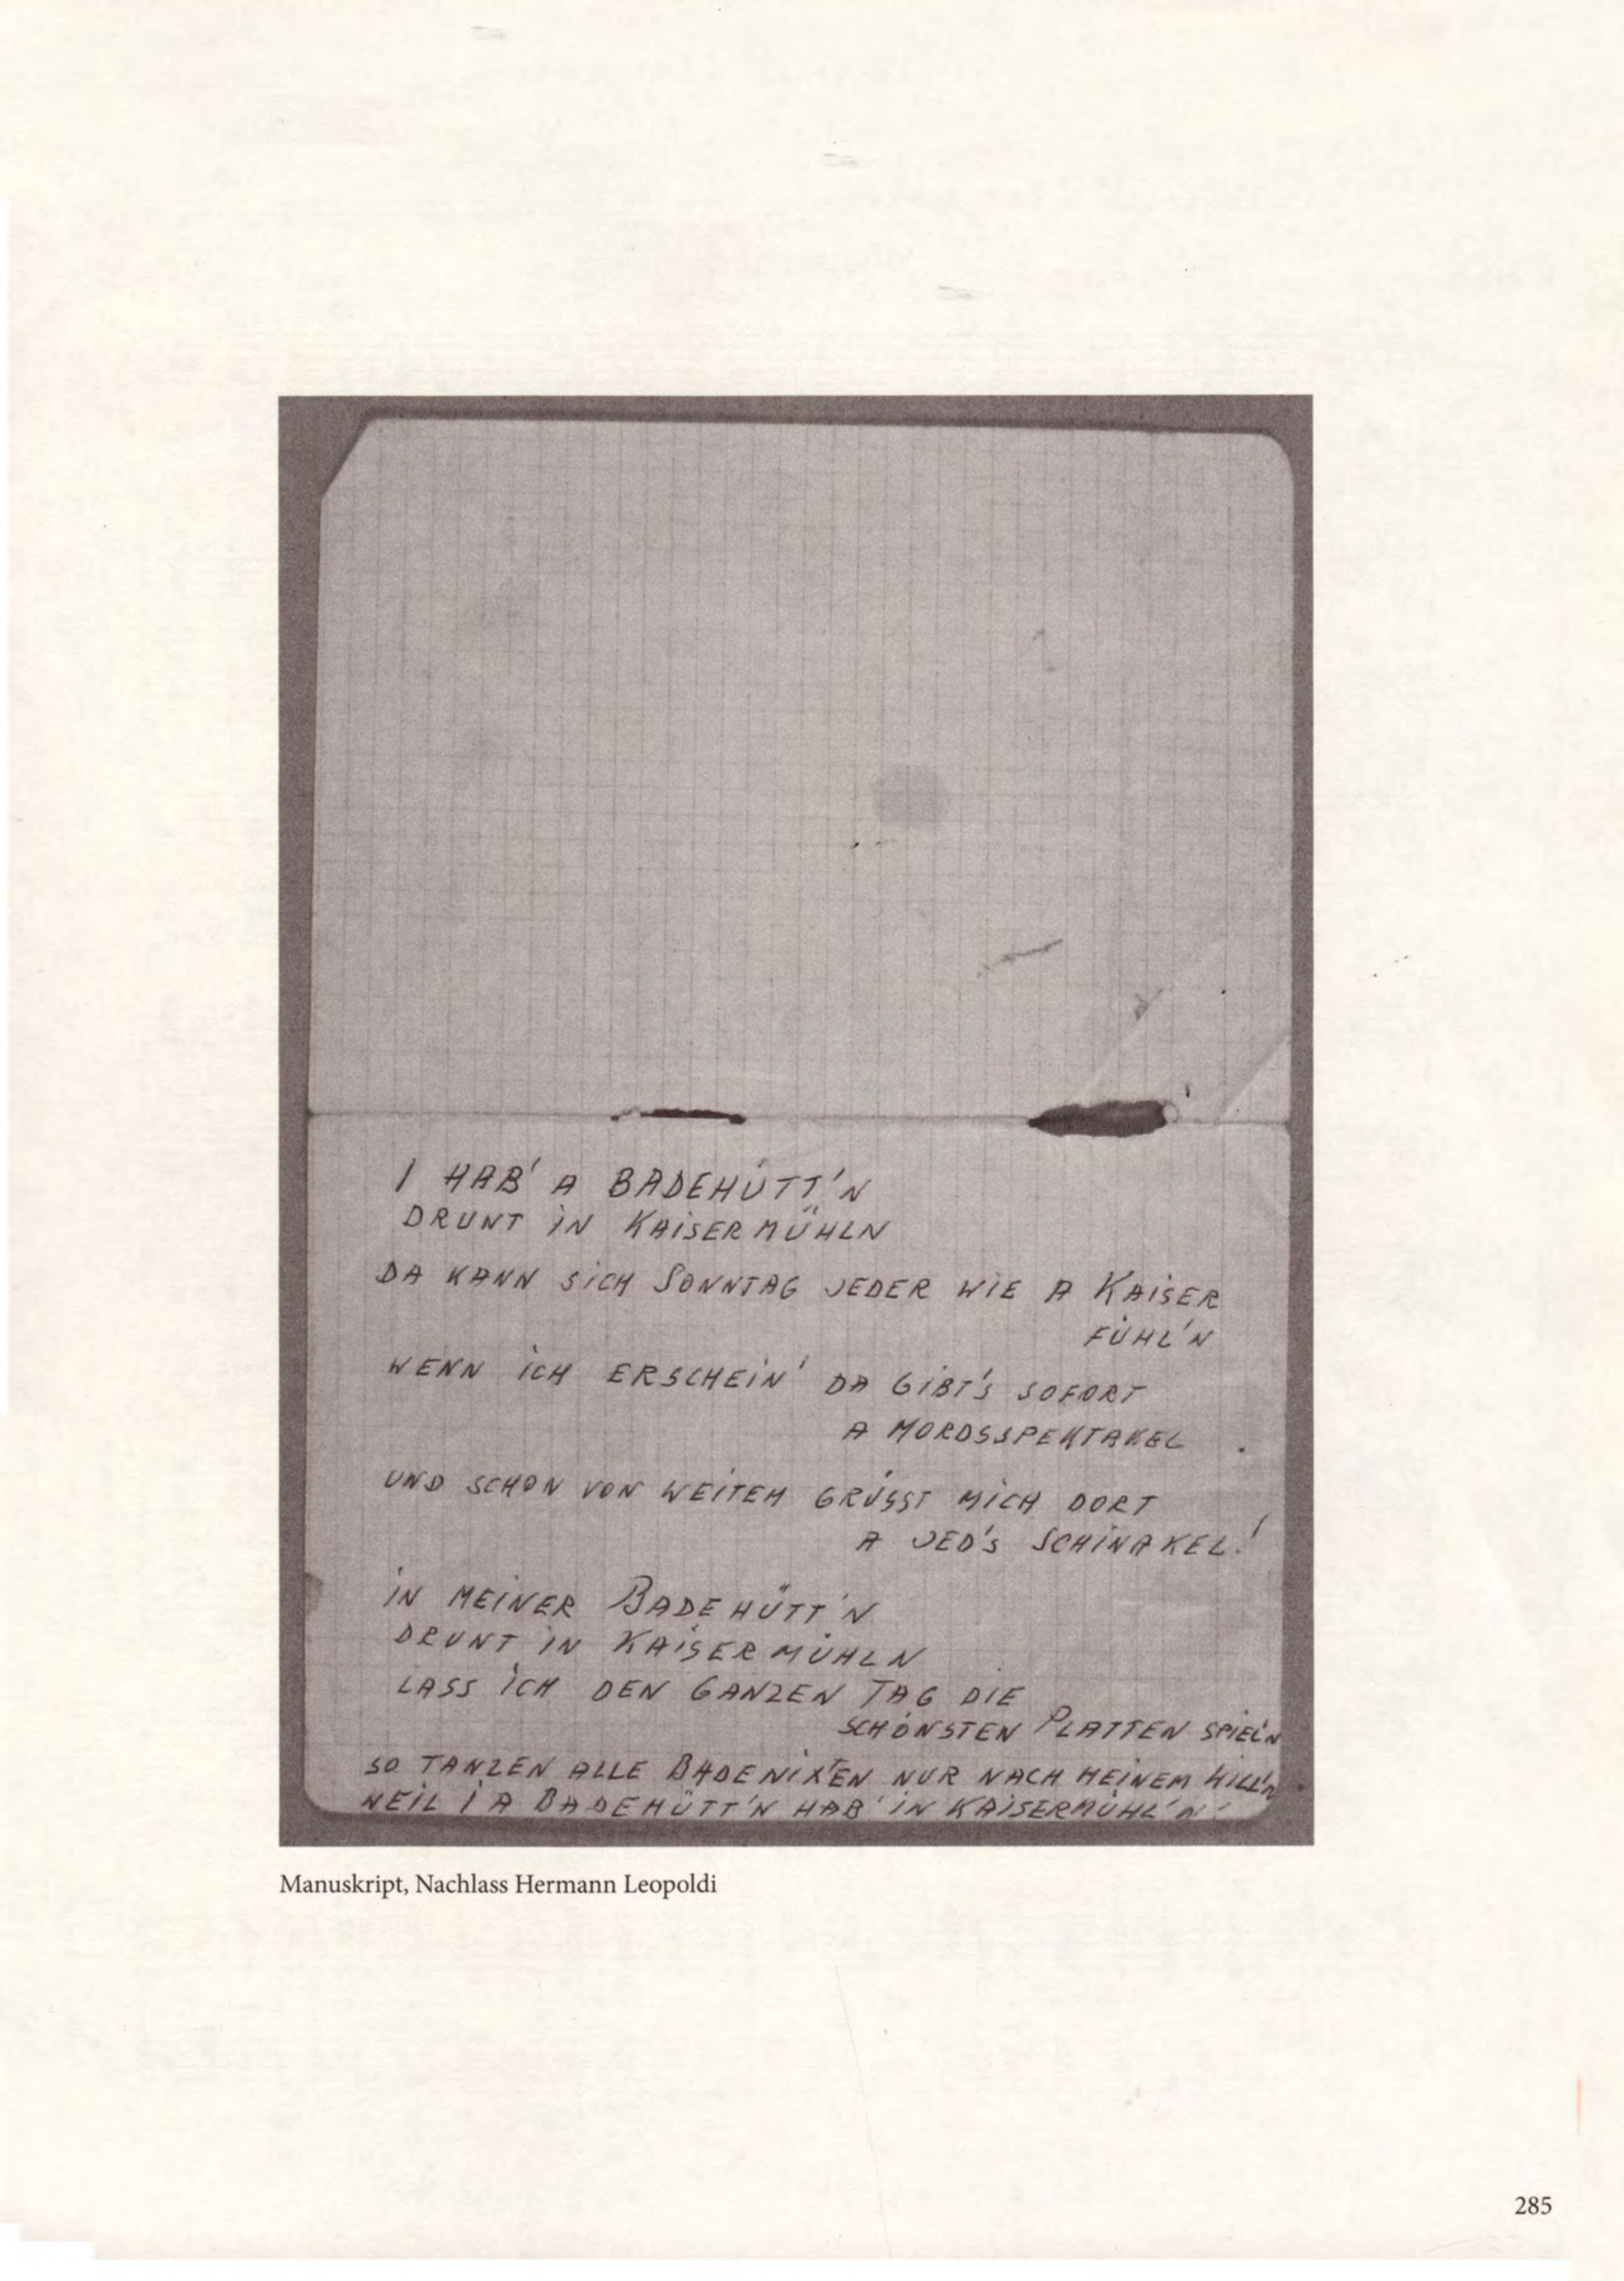 I HAB' A BADEHÜTT'N
DRUNT IN KAISERMÜHLN
DA KANN SICH SONNTAG JEDER WIE A KAISER
FÜHL'N
WENN ICH ERSCHEIN' DA GIBT'S SOFORT
A MORDSSPEKTAKEL .
UND SCHON VON WEITEM GRÜSST MICH DORT
A JED'S SCHINAKEL!
IN MEINER BADEHÜTT'N
DRUNT IN KAISERMÜHLN
LASS ICH DEN GANZEN TAG DIE
SCHÖNSTEN PLATTEN SPIEL'N
SO TANZEN ALLE BADENIXEN NUR NACH MEINEM WILL'N
WEIL I A BADEHÜTT'N HAB' IN KAISERMÜHL'N!
Manuskript, Nachlass Hermann Leopoldi
285